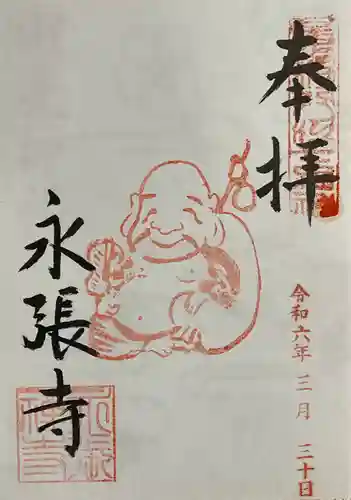 奉拝
令和六年 三月 三十日
永張寺